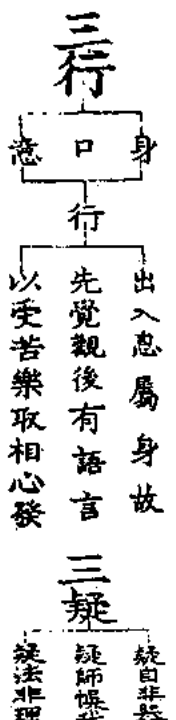 三行
身
口
意
行
出入息屬身故
先覺觀後有語言
以受苦樂取相心發
三疑
疑自非器
疑師
疑法非理